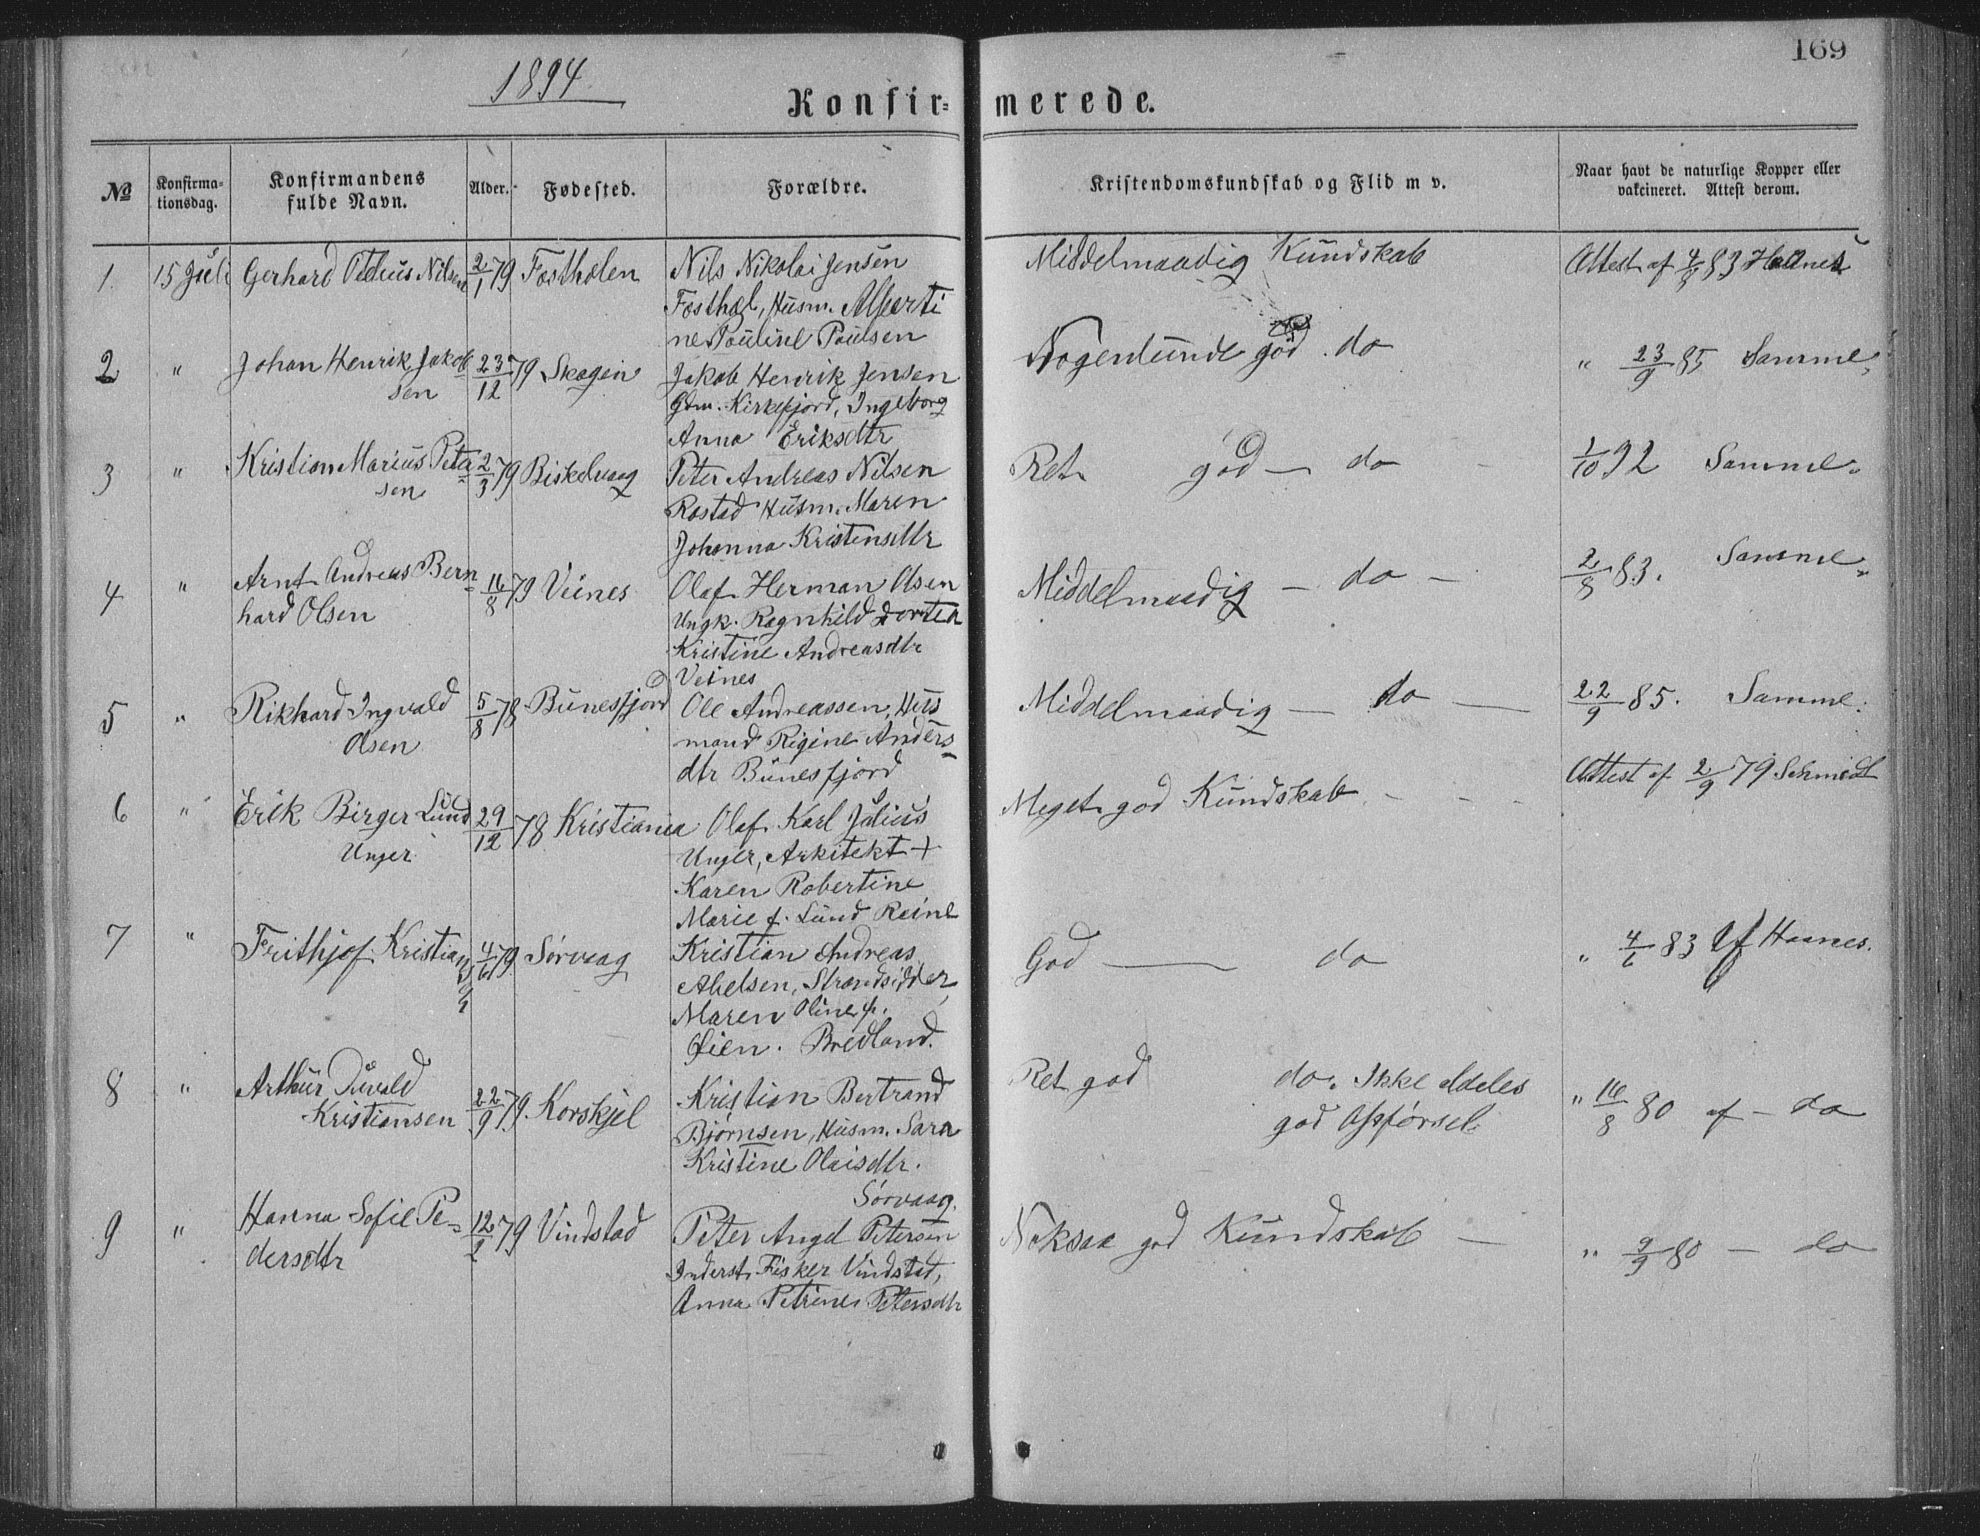 169
1894
Konfir=merede.
№
Konfirma-
tionsdag.
Konfirmandens
fulde Navn.
Alder.
Fødested.
Forældre.
Kristendomskundskab og Flid m v.
Naar havt de naturlige Kopper eller
vakcineret. Attest derom.
1 15 Juli Gerhard Nilsen 2/1 79 Nils Nikolai Jensen Middelmaadig Kundskab Attest af 83
Husm. Alberti
ne Pauline Paulsen
2 " Johan Henrik Jakob 23/12 79 Skagen Jakob Henrik Jensen Nogenlunde god do " 23/9 85 Samme
sen Gdm. Kirkefjord, Ingeborg
Anna Eriksdtr
3 " Kristian Marius Peter 2/3 79 Peter Andreas Nilsen Ret god — do 1/10 92 Samme
sen Rostad Husm. Maren
Johanna Kristensdtr
4 " Arnt Andreas Bern 16/8 79 Veines Olaf Herman Olsen Middelmaadig — do — 2/8 83. Samme
hard Olsen Ungk. Ragnhild Dortea
Kristine Andreasdtr
Veines
5 " Rikhard Ingvald 5/8 78 Bunesfjord Ole Andreassen, Hus Middelmaadig — do — 22/9 85. Samme
Olsen mand Regine Anders=
dtr Bunesfjord
6 " Erik Birger Lund 29/12 78 Kristiania Olaf Karl Julius Meget god Kundskab - - - Attest af 2/9 79 Schmidt
Unger Unger, Arkitekt +
Karen Robertine
Marie f. Lund Reine
7 " Frithjof Kristian 4/6 79 Sørvaag Kristian Andreas God — do " 4/6 83 af Haanes.
Abelsen, Strandsidder
Maren Oline f.
Øien. Bredland.
8 " Arthur 22/9 79. Korskjel Kristian Bertrand Ret god do. Ikke aldeles " 16/8 80 af - do
Kristiansen Bjørnsen, Husm. Sara god Opførsel.
Kristine Olaisdtr.
Sørvaag.
9 " Hanna Sofie Pe= 12/2 79 Vindstad Peter Angel Petersen Noksaa god Kundskab — " 9/9 80 — do
dersdtr Inderst. Fisker Vindstad,
Anna Petrine Petersdtr